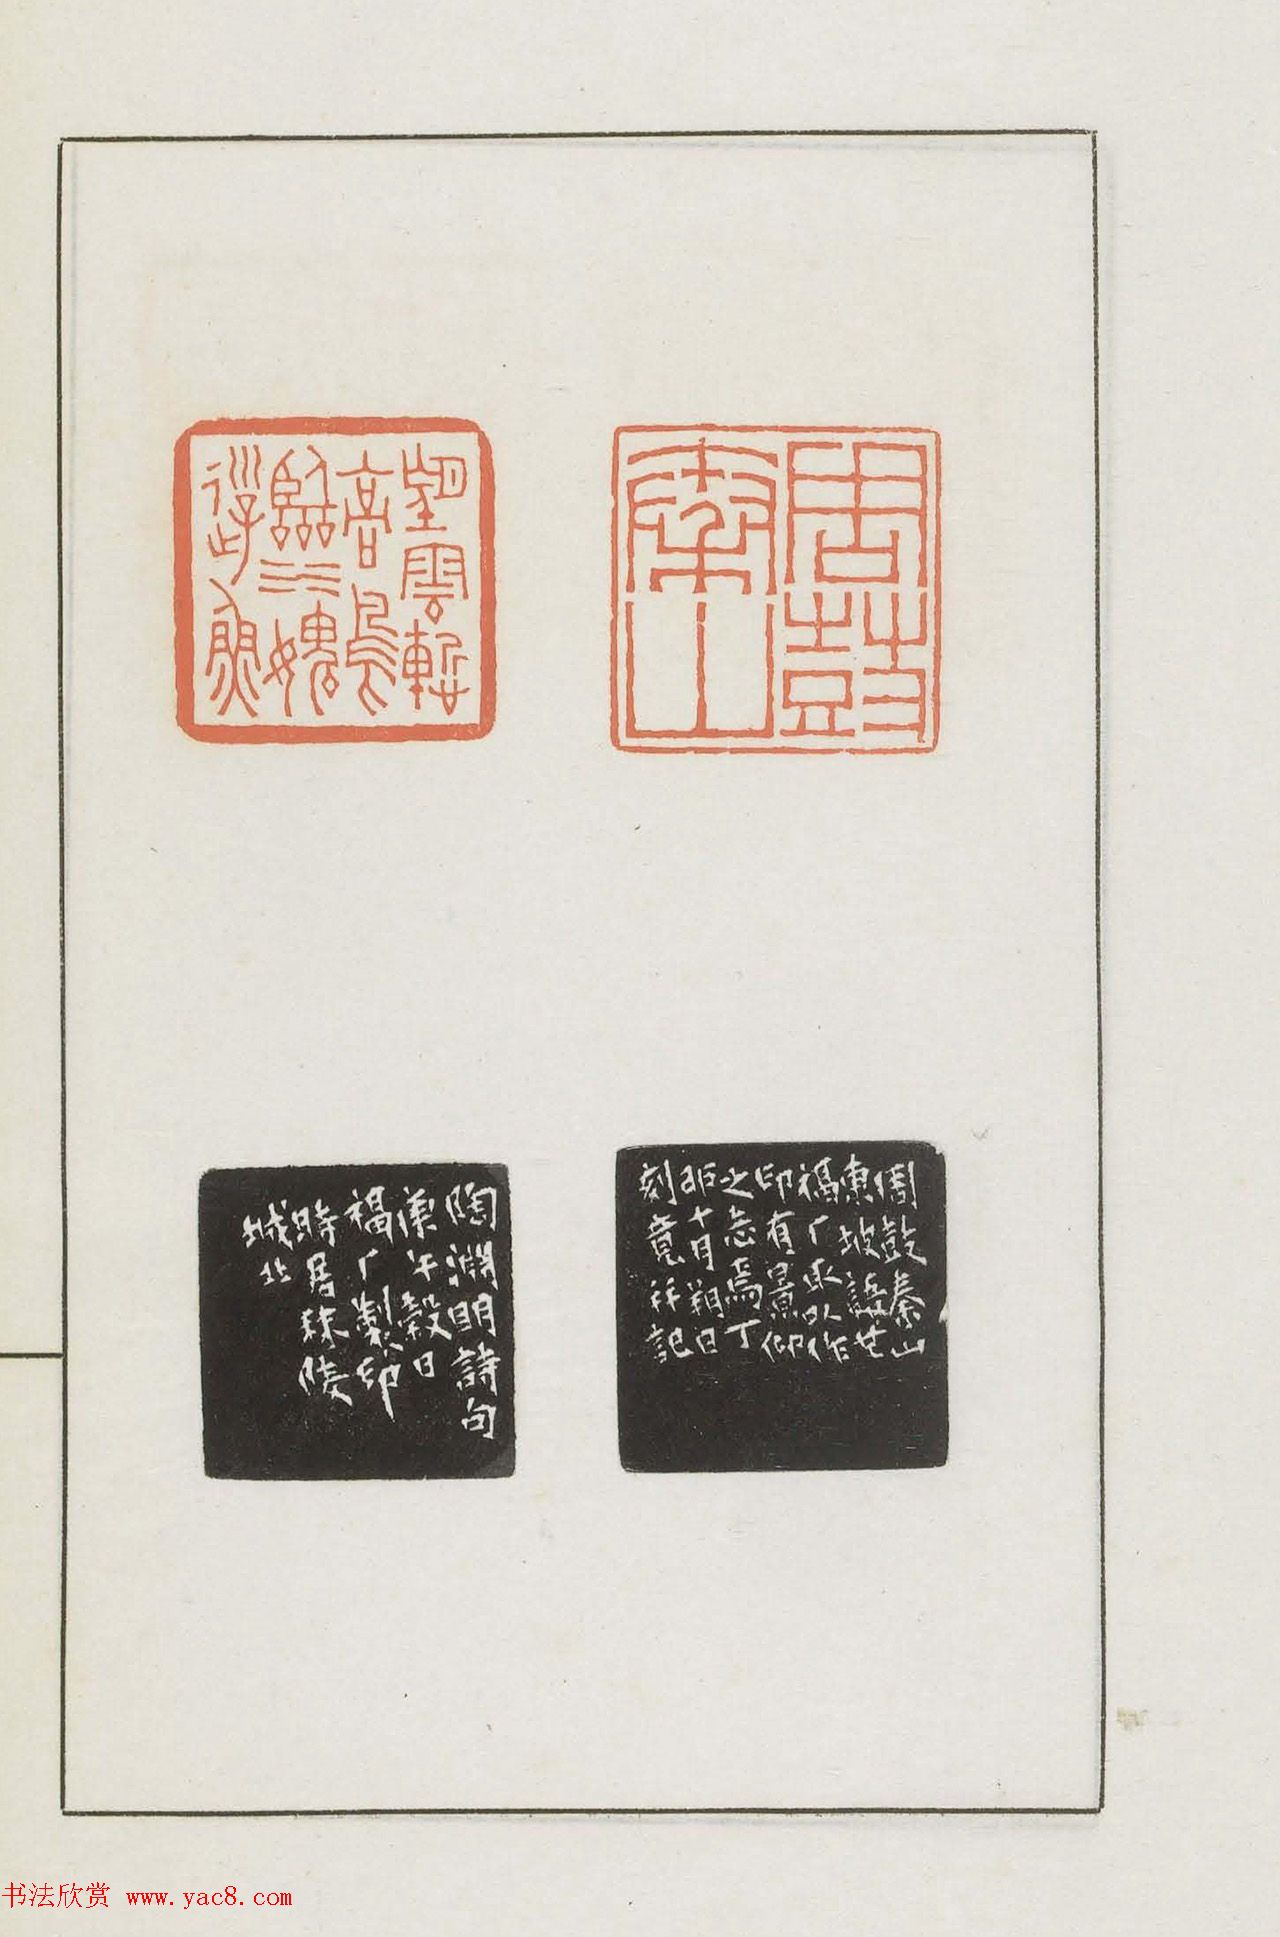 周鼓
秦山
望雲慙
高鳥
臨水媿
游魚
周鼓秦山
東坡語也
福厂取以作
印有景仰
之志焉丁
卯十月朔日
刻竟並記
陶淵明詩句
庚午穀日
福厂製印
時居秣陵
城北
书法欣赏 www.yac8.com